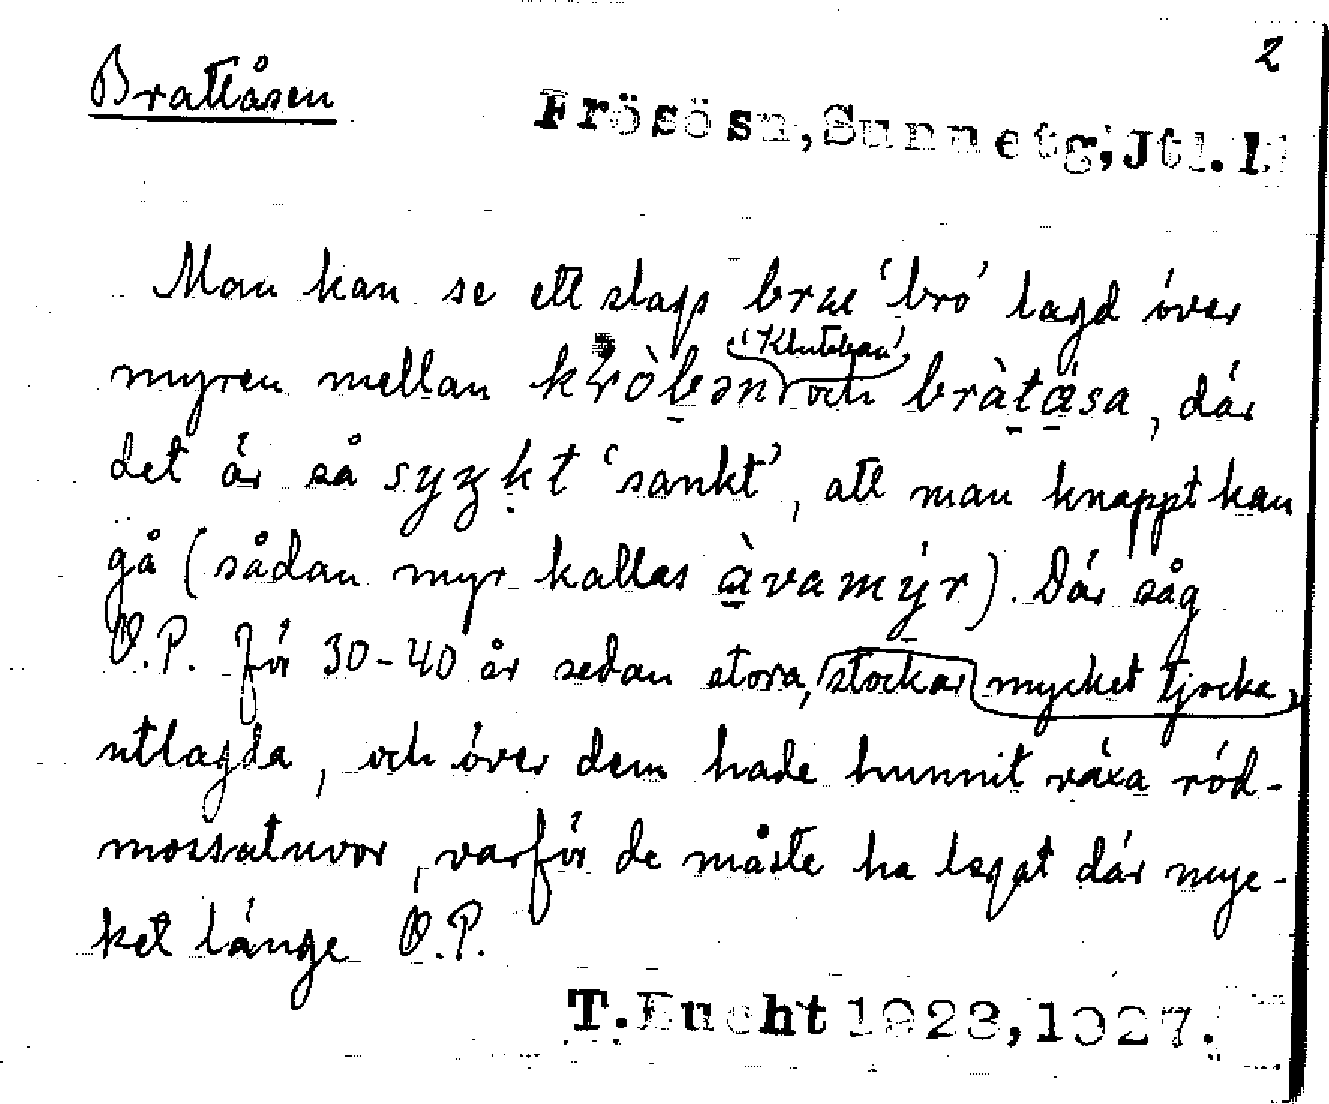 2
Brattåsen
Frösösn, Sunnetg, Jtl. l.
Man kan se ett slags bru 'bro' lagd över
myren mellan kròbən 'Kluteban' och bràtåsa, där
det är så syŋkt 'sankt', att man knappt kan
gå (sådan myr kallas àvamýr). Där såg
O.P. för 30-40 år sedan stora, stockar mycket tjocka
utlagda, och över dem hade hunnit växa röd-
mossatuvor, varför de måste ha legat där myc-
ket länge O.P.
T. Lucht 1923, 1927.